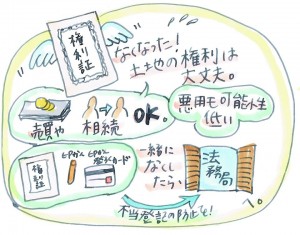 権利証
なくなった！
土地の権利は
大丈夫。
売買や
相続
OK。
悪用も可能性
低い
権利証
印かん
印かん
登録カード
一緒に
なくし
たら
法務局
不当登記の防止を！